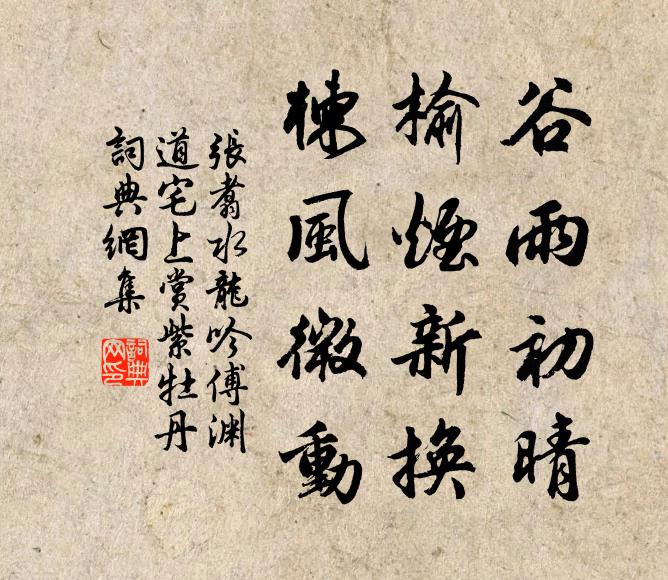 谷雨初晴
榆煙新換
楝風微動
張翥水龍吟傅淵
道宅上賞紫牡丹
詞典網集
詞典
网印